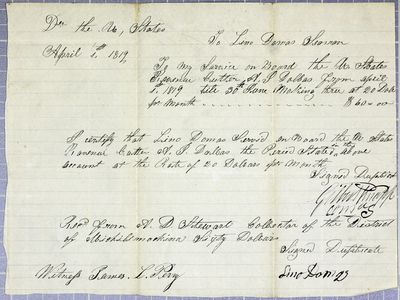 Due the U, States
To Lino Damas Seaman
April 1th 1819
To My Service on Board the U States
Revenue Cutter A. J. Dallas from april
1th 1819 till 30th June Making three at 20 Dols
per Month 60=00
I certify that Lino Damas Served on Board the U States
Revenue Cutter A. J. Dallas the Period Stated, above
account at the Rate of 20 Dollars per Month
Signed Duplicate
Gilbert Knapp
Recd from A. D Stewart Collector of the District
of Michilimackina Sixty Dollars
Signed Duplicate
Witness James L.